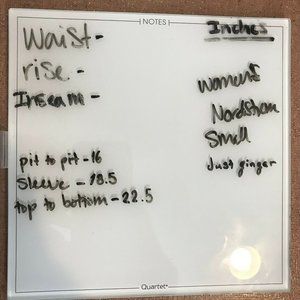 NOTES
Waist -
Inches
rise -
Inseam -
women's
Nordstrom
Small
Just ginger
pit to pit - 16
Sleeve - 18.5
top to bottom - 22.5
Quartet